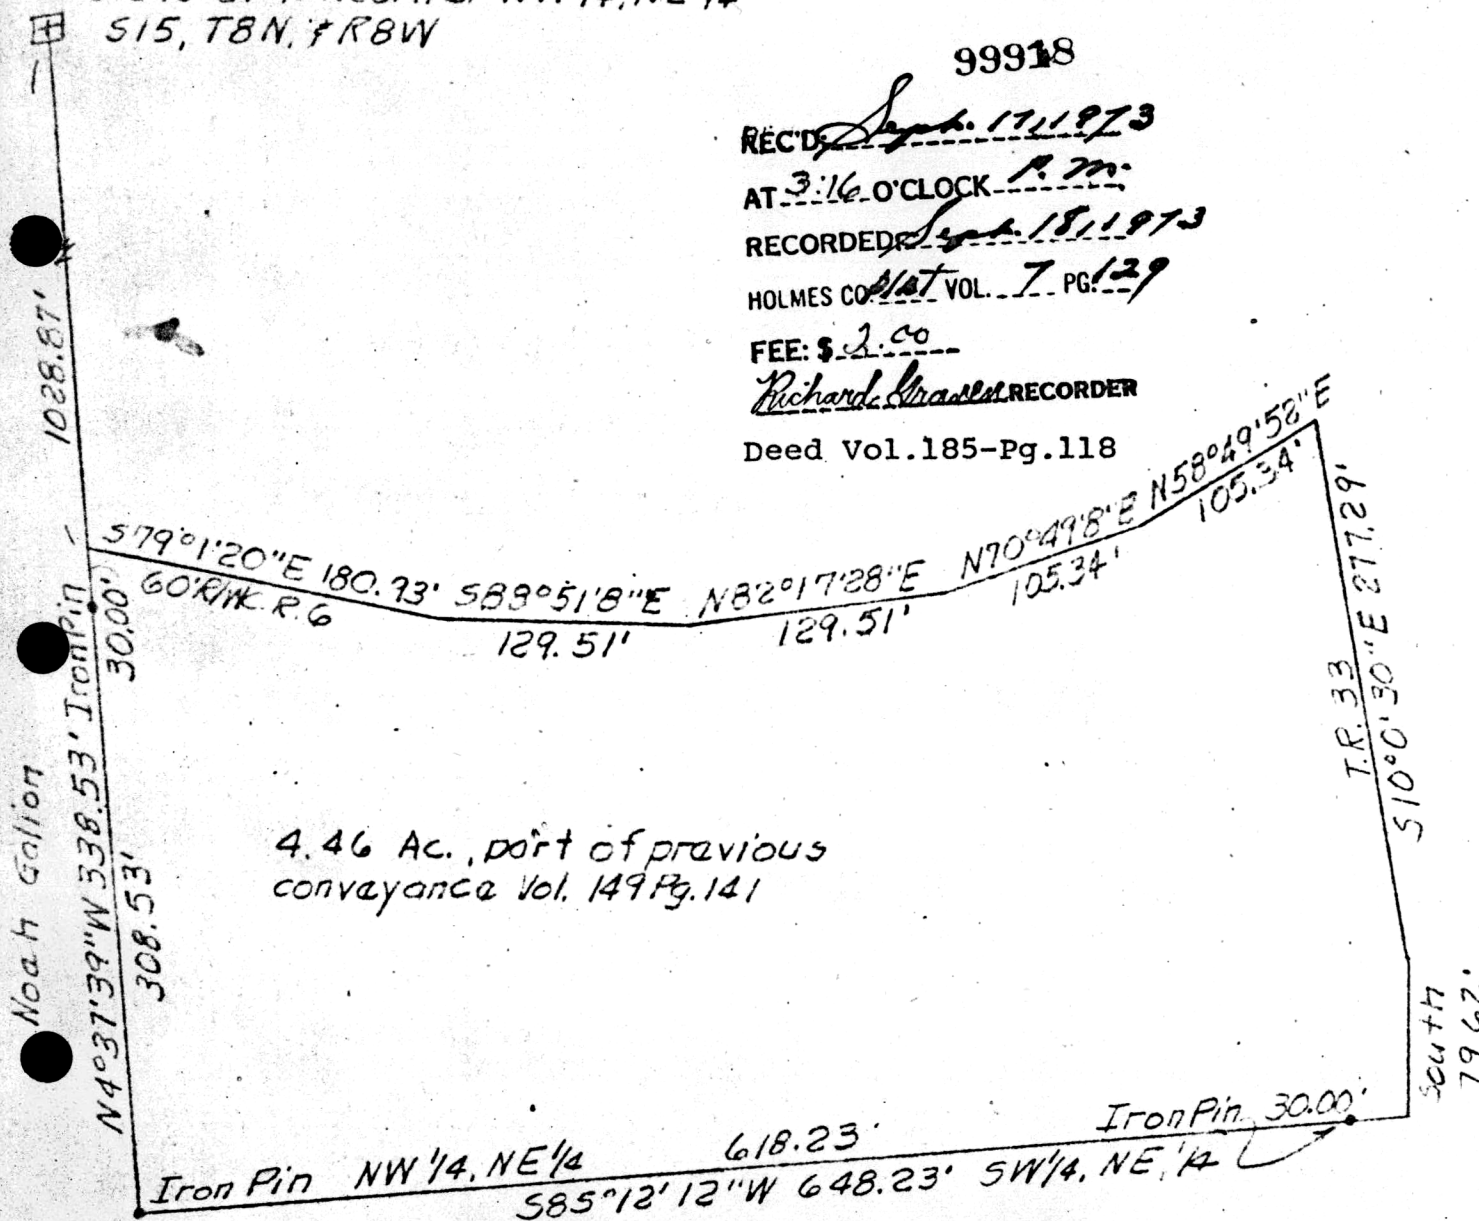 S15, T8N, & R8W
99918
REC'D: Sept. 17, 1973
AT 3:16 O'CLOCK P. M.
RECORDED Sept. 18, 1973
HOLMES CO. Plat VOL. 7 PG. 129
FEE: $ 2.00
Richard Graven RECORDER
Deed Vol.185-Pg.118
1028.87'
S79°1'20"E 180.93'
60' R/W C.R. 6
S88°51'8"E
129.51'
N82°17'28"E
129.51'
N70°49'8"E
105.34'
N58°49'52"E
105.34'
T.R. 33
S10°0'30"E 277.29'
South
79.62'
Iron Pin
30.00'
Noah Galion
N4°37'39"W 338.53'
308.53'
4.46 Ac., part of previous
conveyance Vol. 149 Pg. 141
Iron Pin 30.00'
Iron Pin NW 1/4, NE 1/4 618.23'
S85°12'12"W 648.23' SW 1/4, NE 1/4